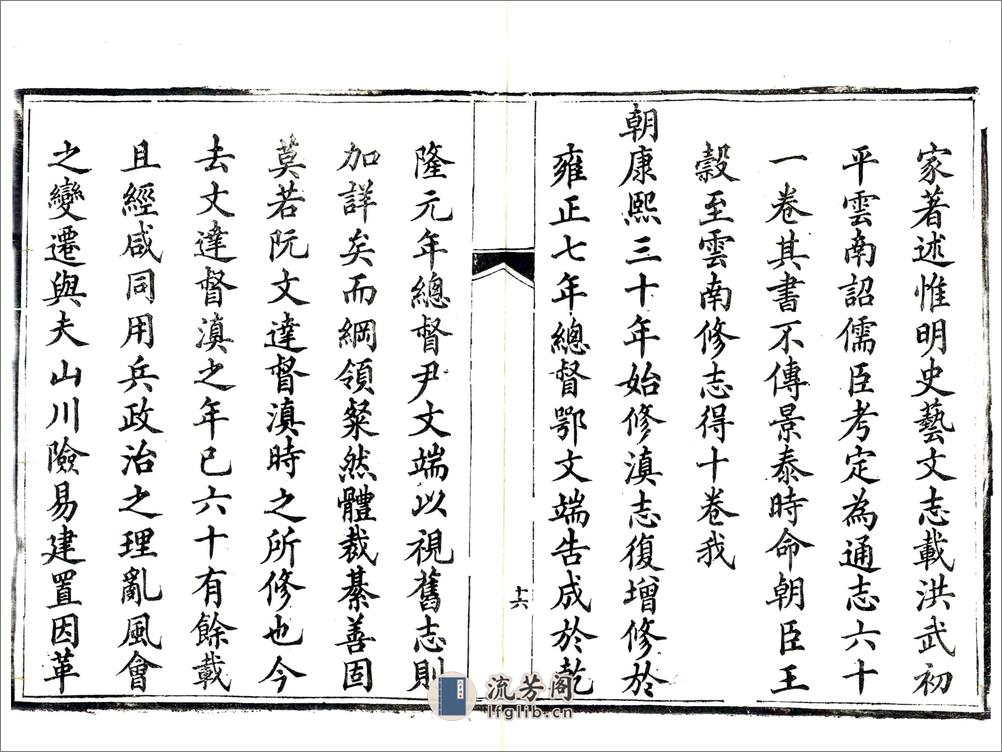 家著述惟明史藝文志載洪武初
平雲南詔儒臣考定為通志六十
一卷其書不傳景泰時命朝臣王
穀至雲南修志得十卷我
朝康熙三十年始修滇志復增修於
雍正七年總督鄂文端告成於乾
十六
隆元年總督尹文端以視舊志則
加詳矣而綱領粲然體裁綦善固
莫若阮文達督滇時之所修也今
去文達督滇之年已六十有餘載
且經咸同用兵政治之理亂風會
之變遷與夫山川險易建置因革
流芳阁
lfglib.cn